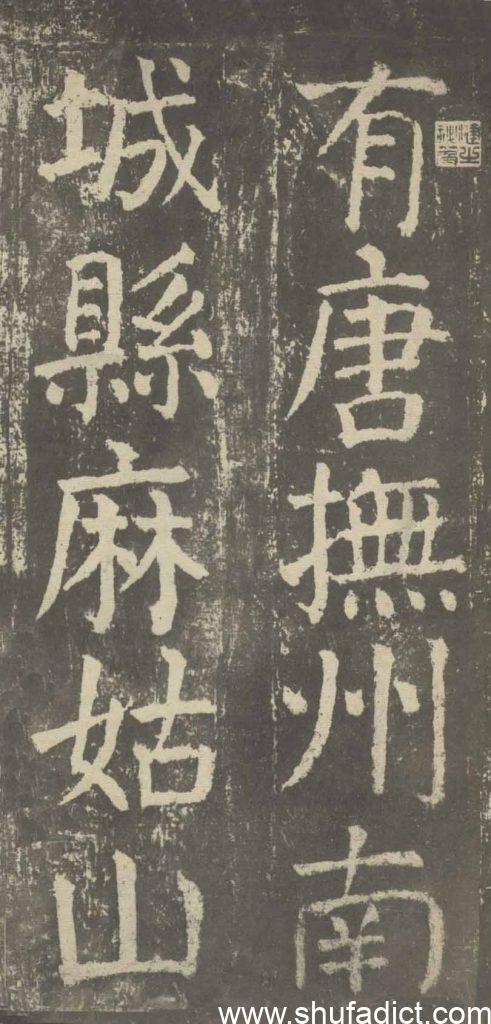 有唐撫州南
城縣麻姑山
www.shufadict.com